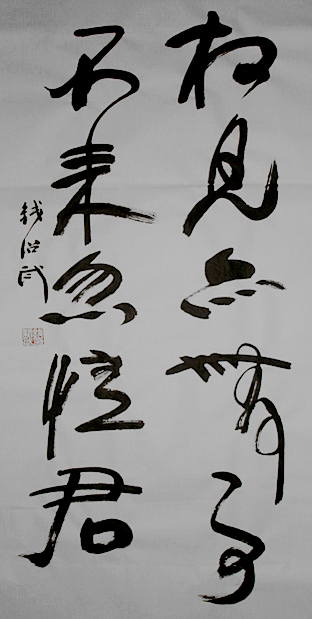 相見亦無事
不来忽憶君
錢绍武